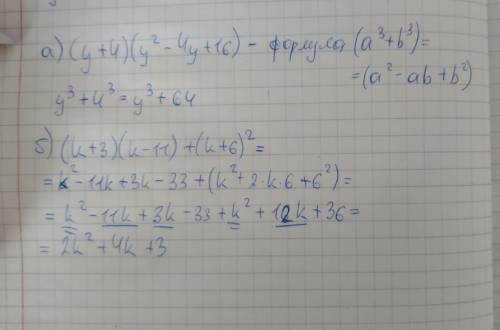 а) (y+4)(y²-4y+16) - формула (a³+b³)=
=(a²-ab+b²)
y³+4³=y³+64
б) (k+3)(k-11)+(k+6)²=
=k²-11k+3k-33+(k²+2·k·6+6²)=
=k²-11k+3k-33+k²+12k+36=
=2k²+4k+3